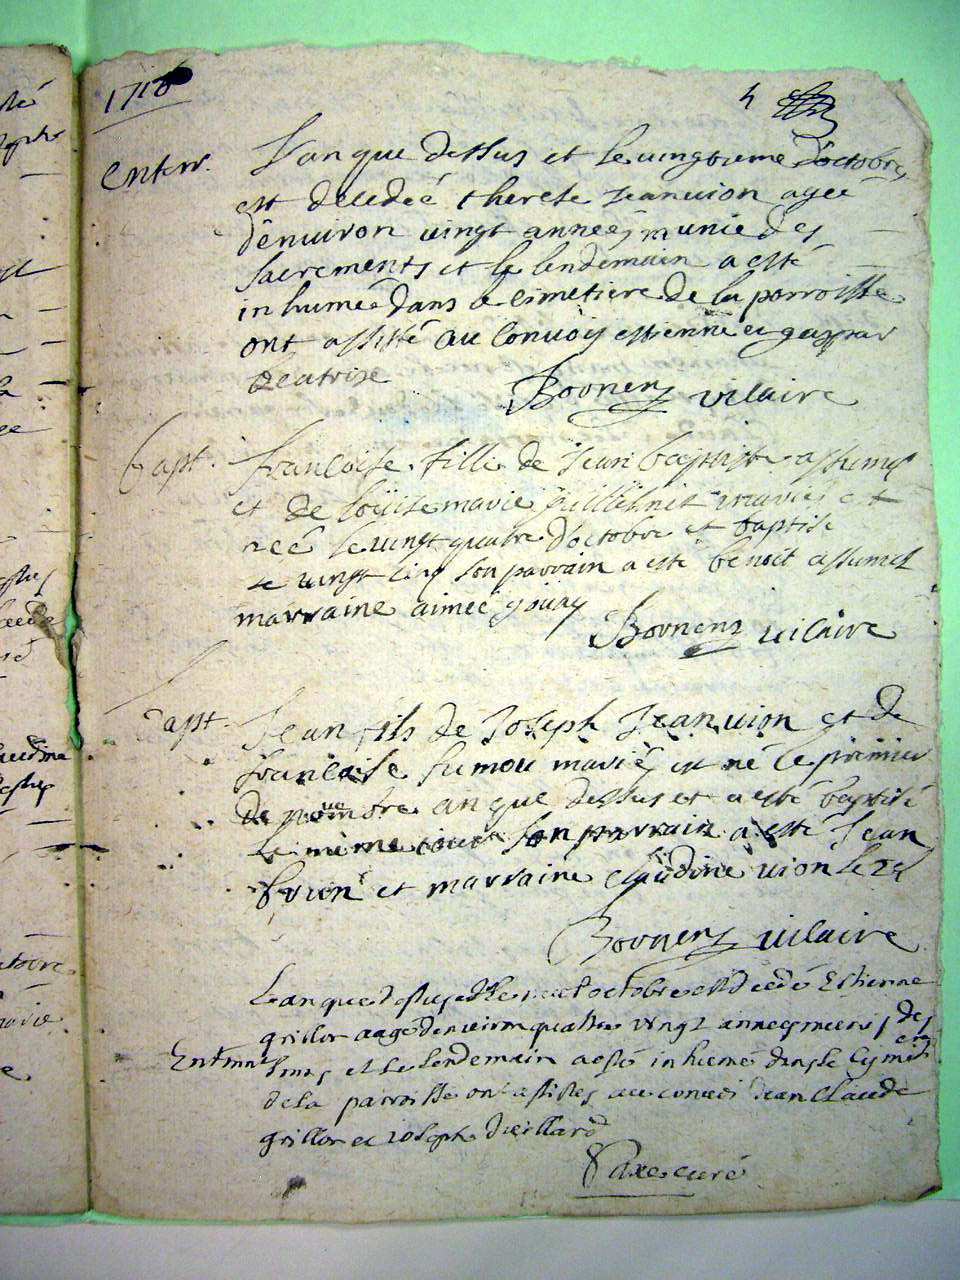 1716
4
enterr. L'an que dessus et le vingtieme d'octobre
est decedeé therese Jeanvion agee
denviron vingt anneés munie des
sacrements et le lendemain a esté
inhumeé dans le cimetiere de la parroisse
ont assisté au convoÿ estienne et gaspar
Beatrise
Bovnenz vilaire
bapt. francoise fille de Jean baptiste assumel
et de loüise marie mariés est
neé le vingt quatre d'octobre et baptisé
le vingt cinq son parrain a esté benoit assumel
marraine aimeé
Bovnenz vilaire
bapt. Jean fils de Joseph Jeanvion et de
francoise fumou mariés est né le premier
de novembre an que dessus et a esté baptisé
le méme iour son parrain a esté Jean
et marraine claudine vion
Bovnenz vilaire
Lan que dessus et le octobre est decedé Estienne
grillon aagé denviron quattre vingt anneés muni des
Enterrmnt et le lendemain a esté inhumé dans le Cymet
de la parroisse ont assistés au convoi Jean Claude
grillon et ioseph vieillard
curé